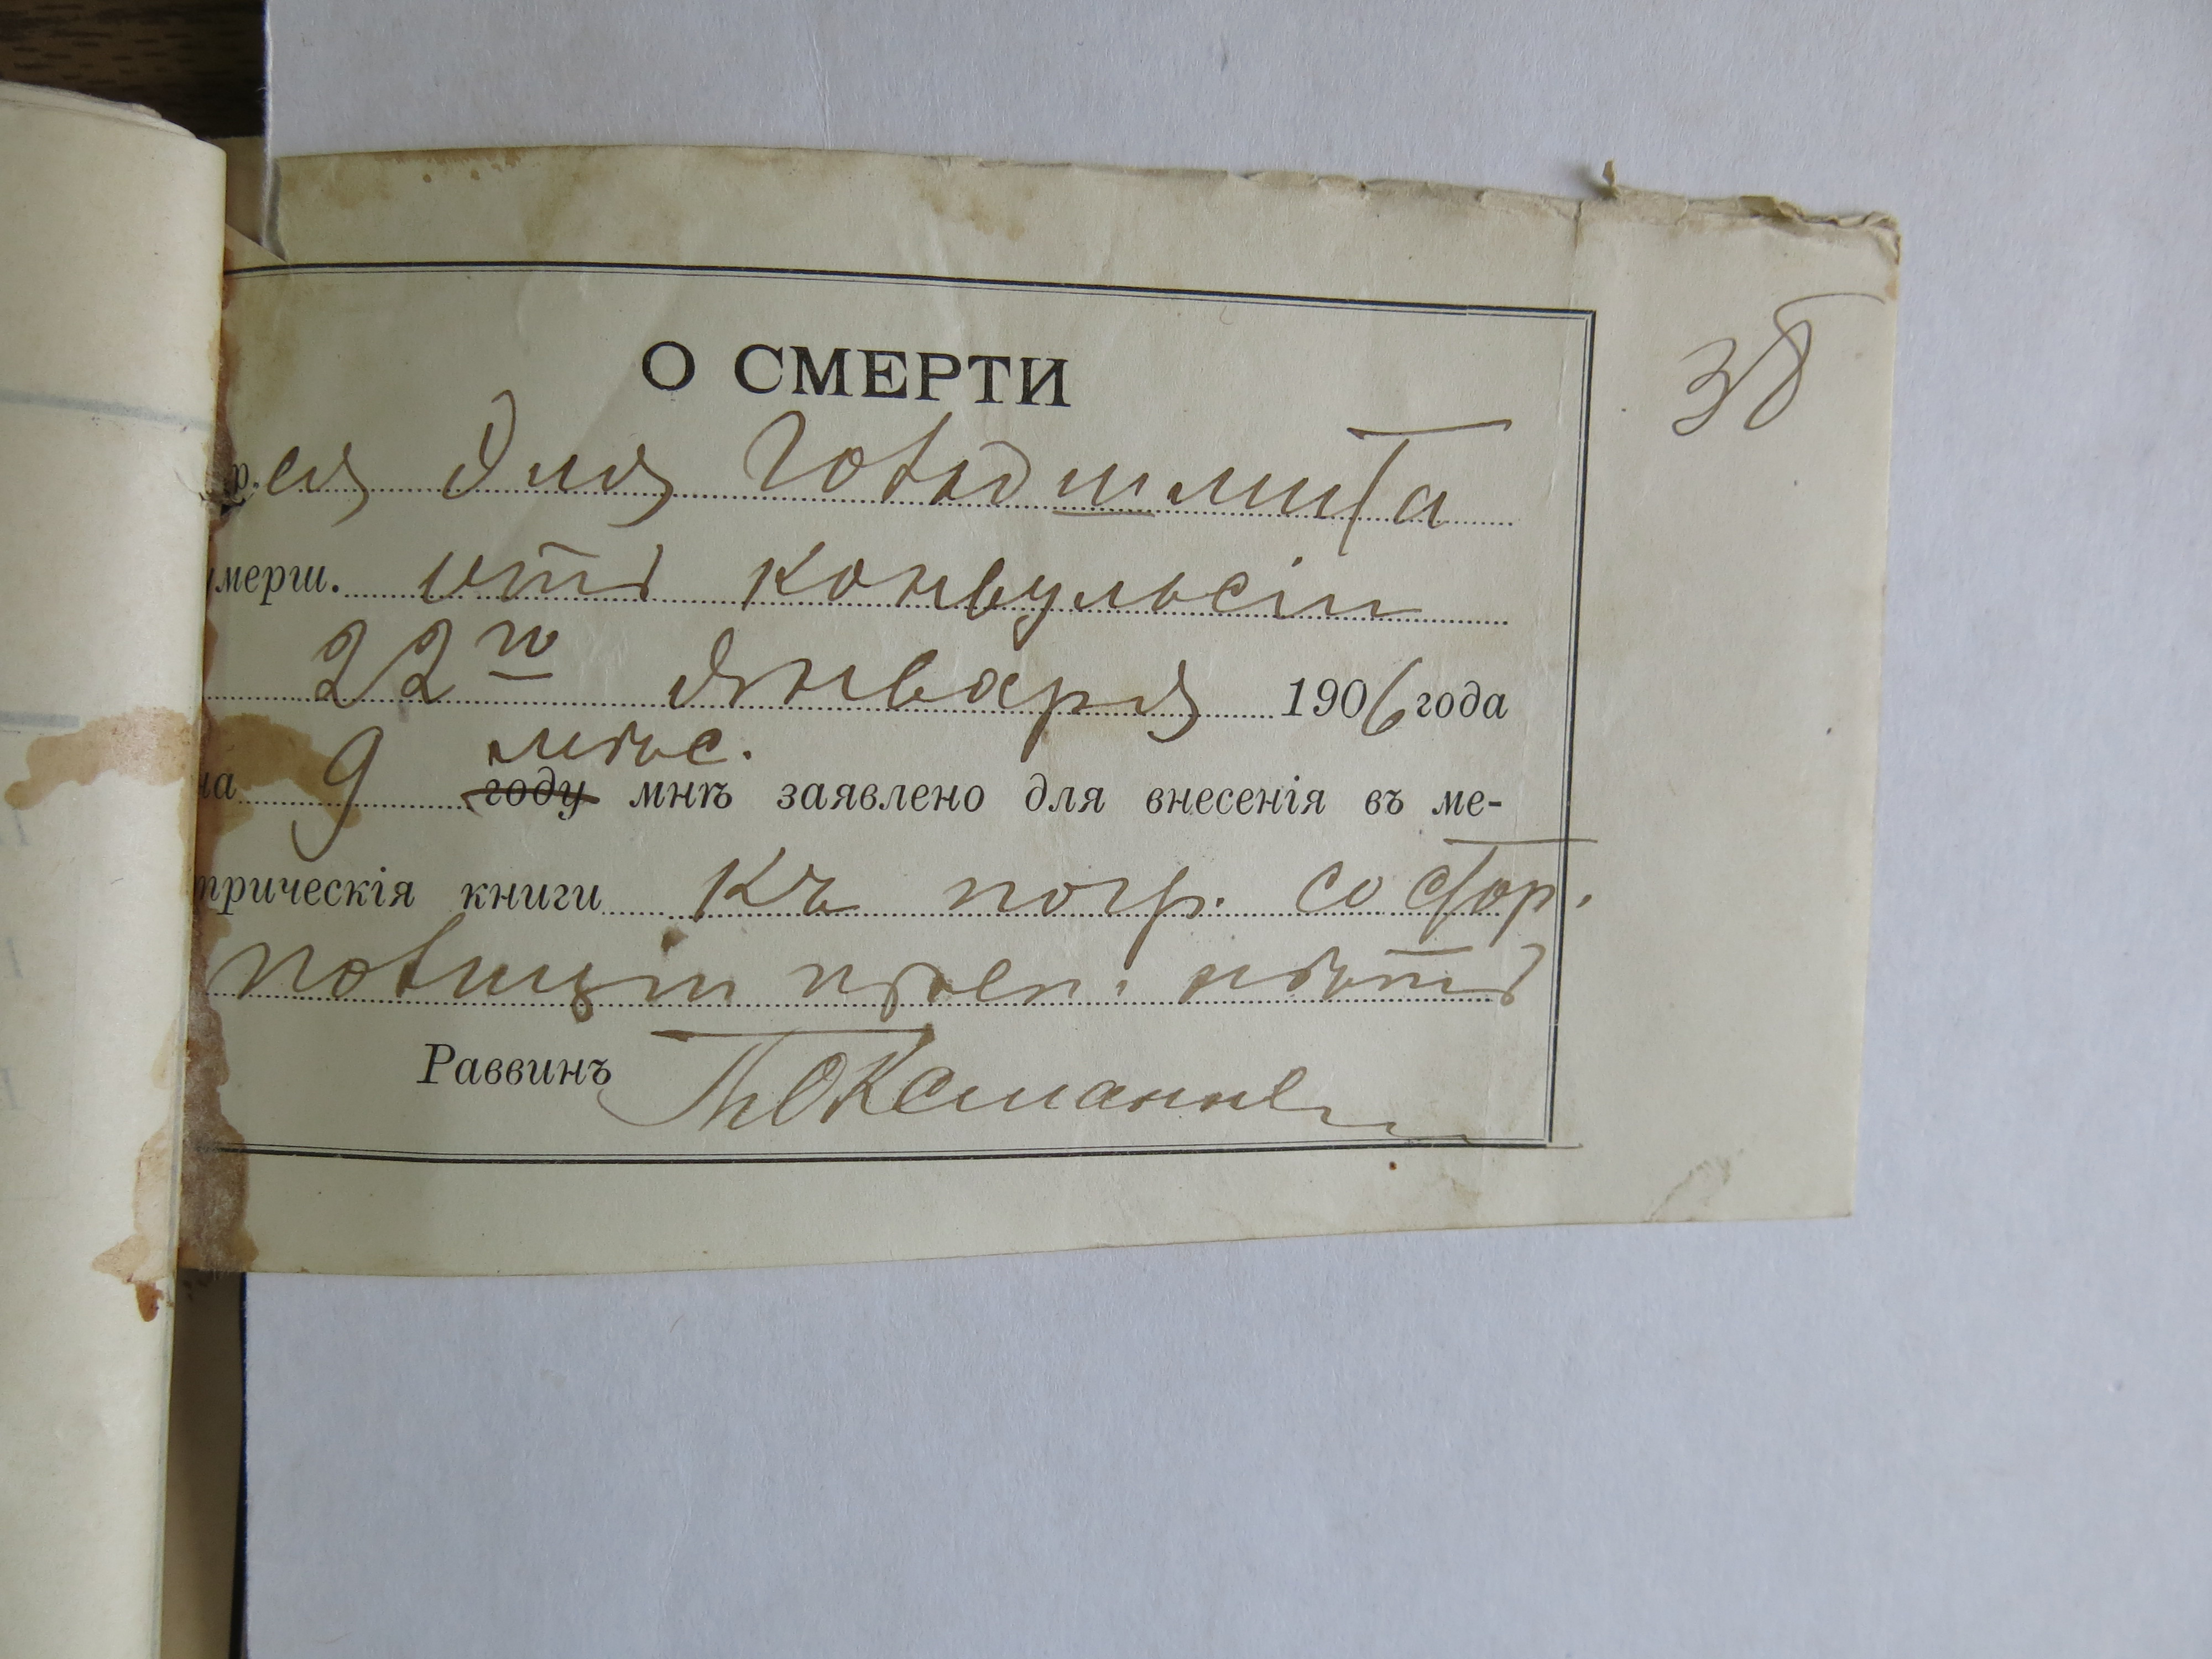 О СМЕРТИ
38
р.ея Эля Гольдшмита
умерш. отъ конвульсіи
22го Января 1906 года
мѣс.
на 9 году мнѣ заявлено для внесенія въ ме-
трическія книги Къ погр. со стор.
полиціи препят. нѣтъ
Раввинъ